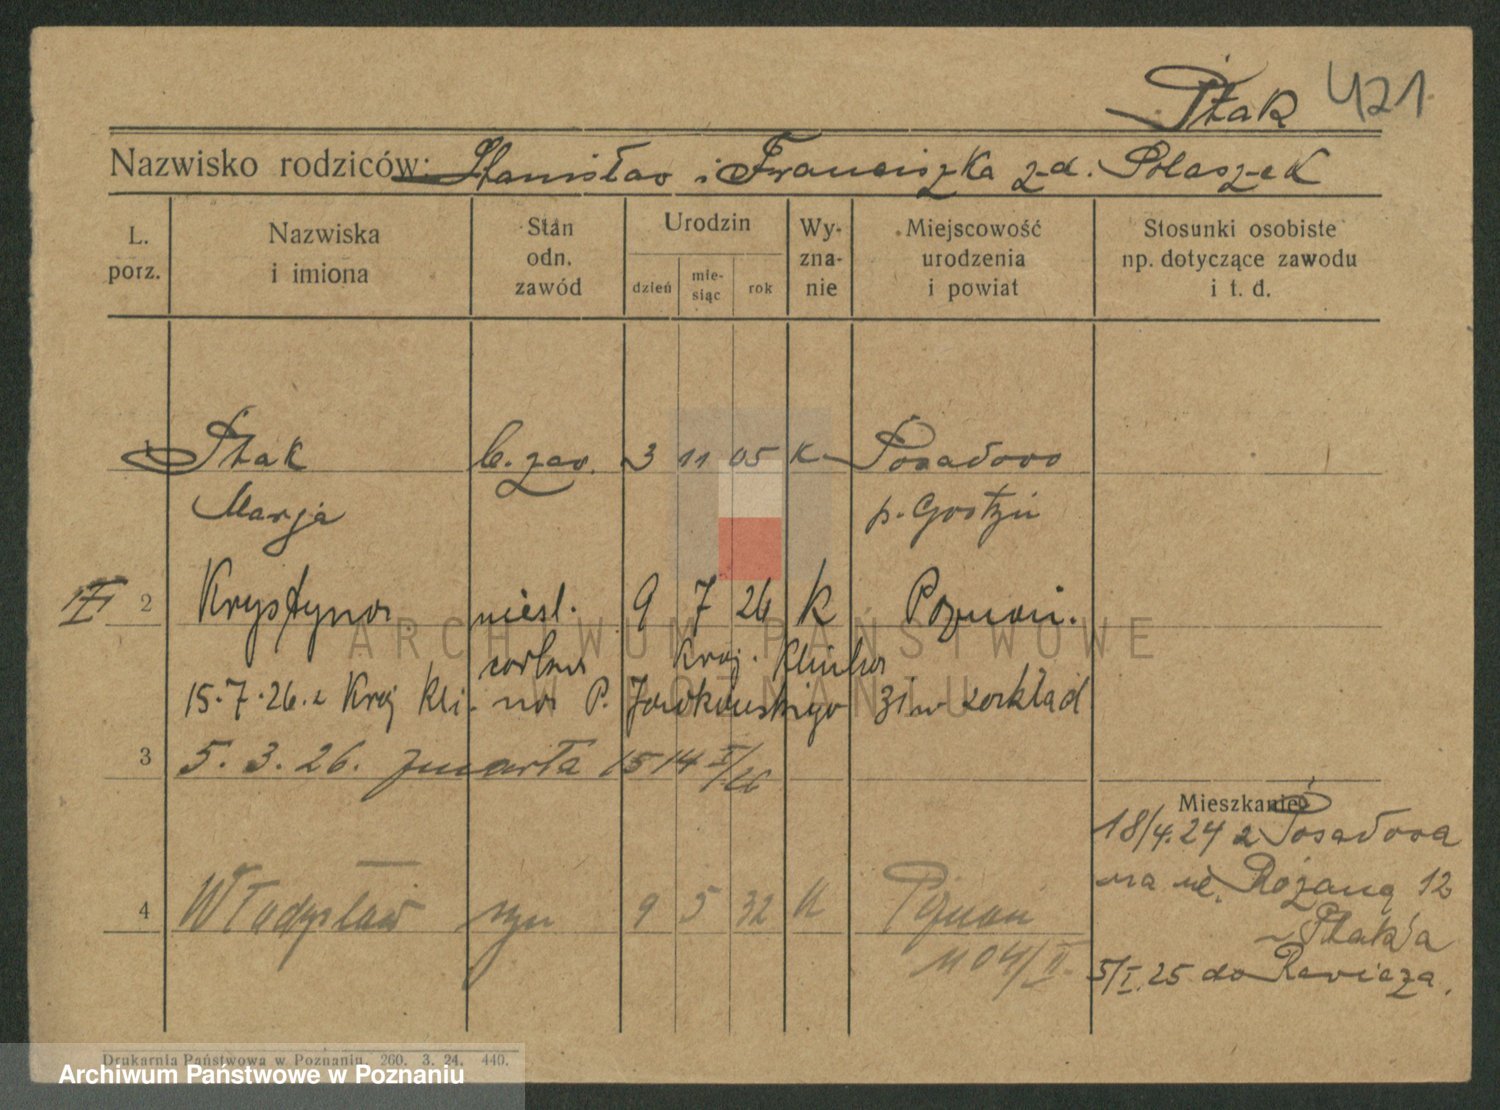 Ptak 421.
Nazwisko rodziców: Stanisław i Franciszka z d. Polaszek
L. porz.
Nazwiska i imiona
Stan odn. zawód
Urodzin
dzień
mie-siąc
rok
Wy-zna-nie
Miejscowość urodzenia i powiat
Stosunki osobiste np. dotyczące zawodu i t. d.
1 Ptak b. zav. 3 11 05 K. Posadowo
Marja p. Gostyń
III 2 Krystyna niesl. 9 7 26 k Poznań.
córka Kraj. Klinika
15.7.26 z Kraj Kli- na P. Jarokowskiego zakład
3 5. 3. 26. zmarła 1514 I/26
4 Władysław syn 9 5 32 K Poznań
1104/II.
Mieszkanie
18/4.24 z Posadowa
na ul. Różaną 12
~ Ptak'a
5/I.25 do Rawicza.
ARCHIWUM PAŃSTWOWE
W POZNANIU
Drukarnia Państwowa w Poznaniu. 260. 3. 24. 440.
Archiwum Państwowe w Poznaniu